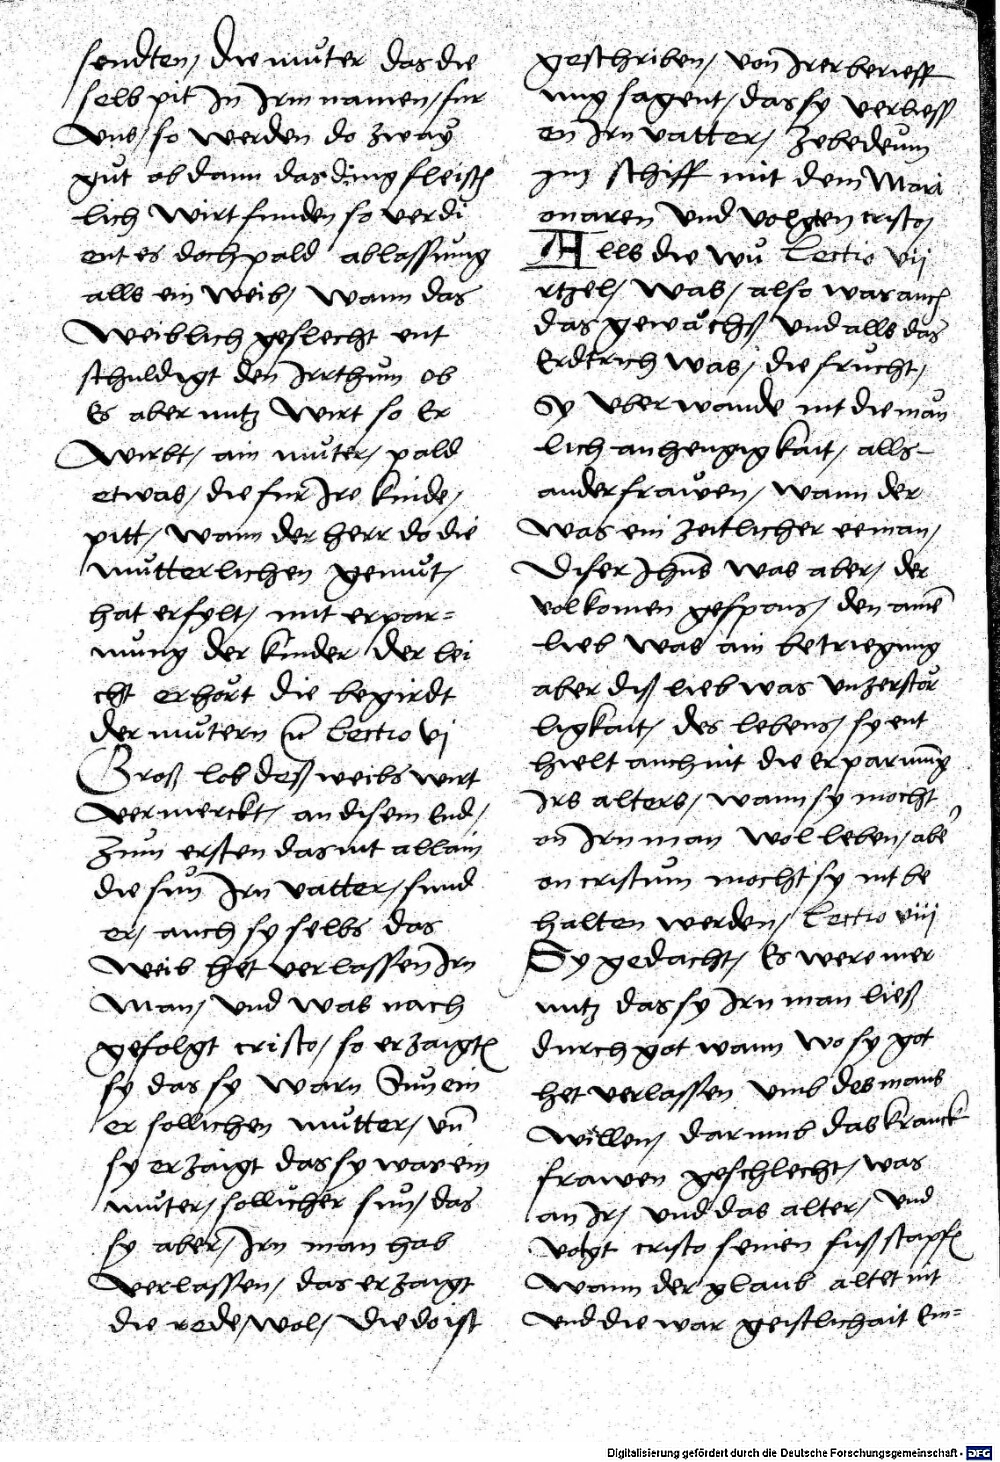 sendten / die muter das die
selb pit In Irm namen / fur
uns / so werden do zway
gut ob dann das ding fleisch
lich wirt funden so verdi
ent es doch pald ablassung
alls ein weib / wann das
weiblich geslecht ent
schuldigt den Irrthum ob
Es aber nutz wirt so Er
wirbt / ain muter / pald
etwas / die fur Ire kinde /
pitt / wann der herr do die
mutterlichen gemut /
hat erfylt / mit erpar=
mung der kinder der lei
cht erhört die begirdt
der mutern Lectio vj
Groß lob deß weibs wirt
vermerckt / an disem End /
zum ersten das nit allain
die sun Irn vatter / sund
er / auch sy selbs das
weib het verlassen Irn
Man / und was nach
gefolgt cristo / so erzaigt
sy das sy warn Sun ein
er sollichen mutter / un
sy erzaigt das sy was ein
muter / sollicher sun / das
sy aber / Irn man hab
verlassen / das erzaigt
die rede / wol / die do ist
geschriben / von Irer berueff
ung sagent / das sy verliess
en Irn vatter / Zebedeum
im schiff mit dem Mari
onaren und volgten cristo /
Alls die wu Lectio vij
rtzel / was / also was auch
das gewächß und alls das
Erdtrich was / die frucht /
Sy uberwande nit die man
lich anhengigkait / alls
ander frawen / wann der
was ein zeitlicher eeman /
Diser Ihus was aber / der
volkomen gespons / den ainen
lieb was ain betriegung
aber diß lieb was unzerstör
ligkait / des lebens / sy ent
hielt auch nit die erparmung
Irs alters / wann sy mocht
on Irn man wol leben / aber
on cristum mocht sy nit be
halten werden / Lectio viij
Sy gedacht / Es were mer
nutz das sy Irn man ließ
durch got wann wo sy got
het verlassen umb des mans
willen / darumb das kranck
frawen geschlecht / was
an Ir / und das alter / und
volgt cristo seinen fußstapffen
Wann der glaub altet nit
und die war geistlichait Em=
Digitalisierung gefördert durch die Deutsche Forschungsgemeinschaft - DFG